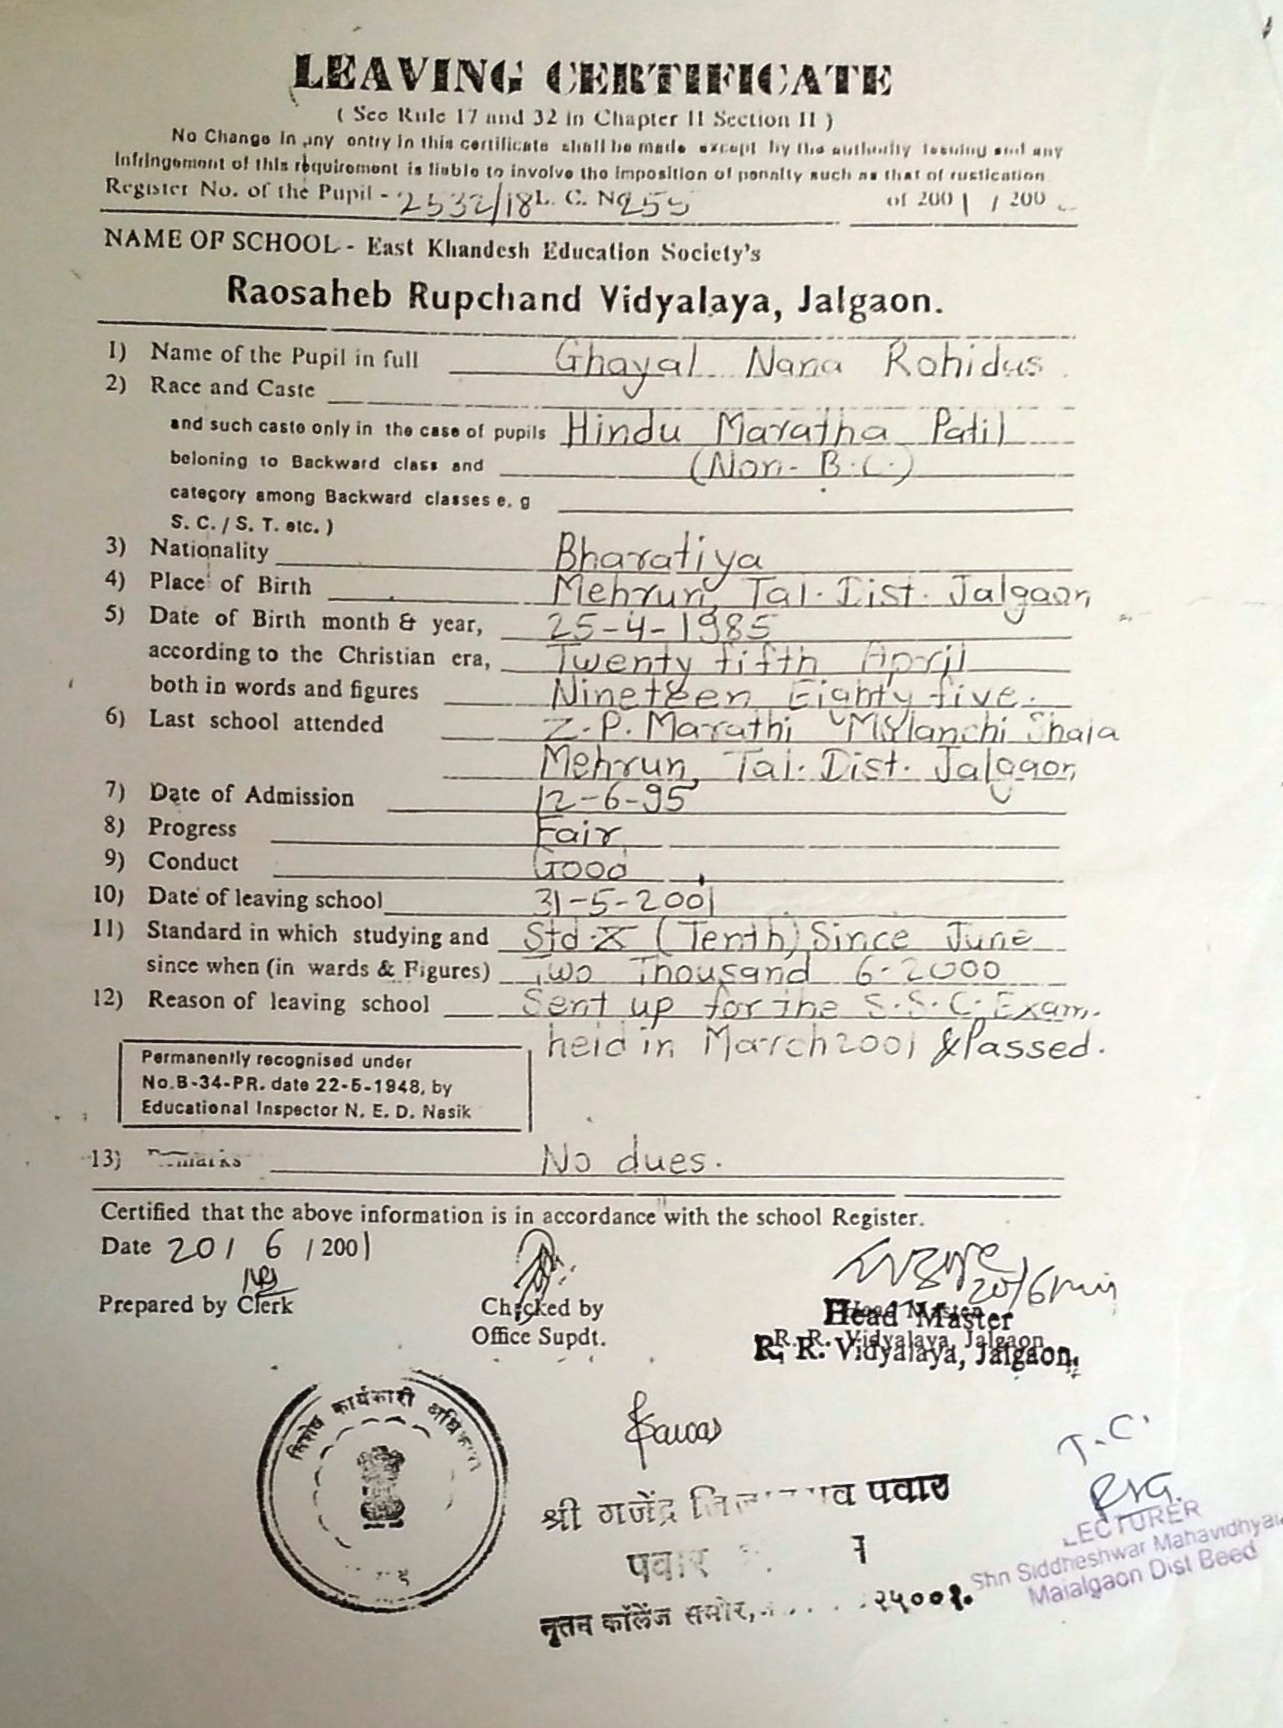 LEAVING CERTIFICATE
( See Rule 17 and 32 in Chapter II Section II )
No Change In any entry in this certificate shall be made except by the authority issuing and any
Infringement of this requirement is liable to involve the imposition of penalty such as that of rustication
Register No. of the Pupil - 2532/18 L. C. No 255 of 2001 / 200
NAME OF SCHOOL - East Khandesh Education Society's
Raosaheb Rupchand Vidyalaya, Jalgaon.
1) Name of the Pupil in full Ghayal Nana Rohidas
2) Race and Caste
and such caste only in the case of pupils Hindu Maratha Patil
beloning to Backward class and (Non-B.C.)
category among Backward classes e. g
S. C. / S. T. etc. )
3) Nationality Bharatiya
4) Place of Birth Mehrun, Tal. Dist. Jalgaon
5) Date of Birth month & year, 25-4-1985
according to the Christian era, Twenty fifth April
both in words and figures Nineteen Eighty five.
6) Last school attended Z.P. Marathi Mulanchi Shala
Mehrun, Tal. Dist. Jalgaon
7) Date of Admission 12-6-95
8) Progress Fair
9) Conduct Good
10) Date of leaving school 31-5-2001
11) Standard in which studying and Std. X (Tenth) Since June
since when (in wards & Figures) Two Thousand 6-2000
12) Reason of leaving school Sent up for the S.S.C. Exam.
held in March 2001 & Passed.
Permanently recognised under
No.B-34-PR. date 22-5-1948, by
Educational Inspector N. E. D. Nasik
13) Remarks No dues.
Certified that the above information is in accordance with the school Register.
Date 20 / 6 / 2001
20/6
Prepared by Clerk Checked by Head Master
Office Supdt. R. R. Vidyalaya, Jalgaon.
विशेष कार्यकारी अधिकारी
T.C.
श्री गजेंद्र पवार
पवार
नूतन कॉलेज समोर,
LECTURER
Shri Siddheshwar Mahavidhyal
Majalgaon Dist Beed